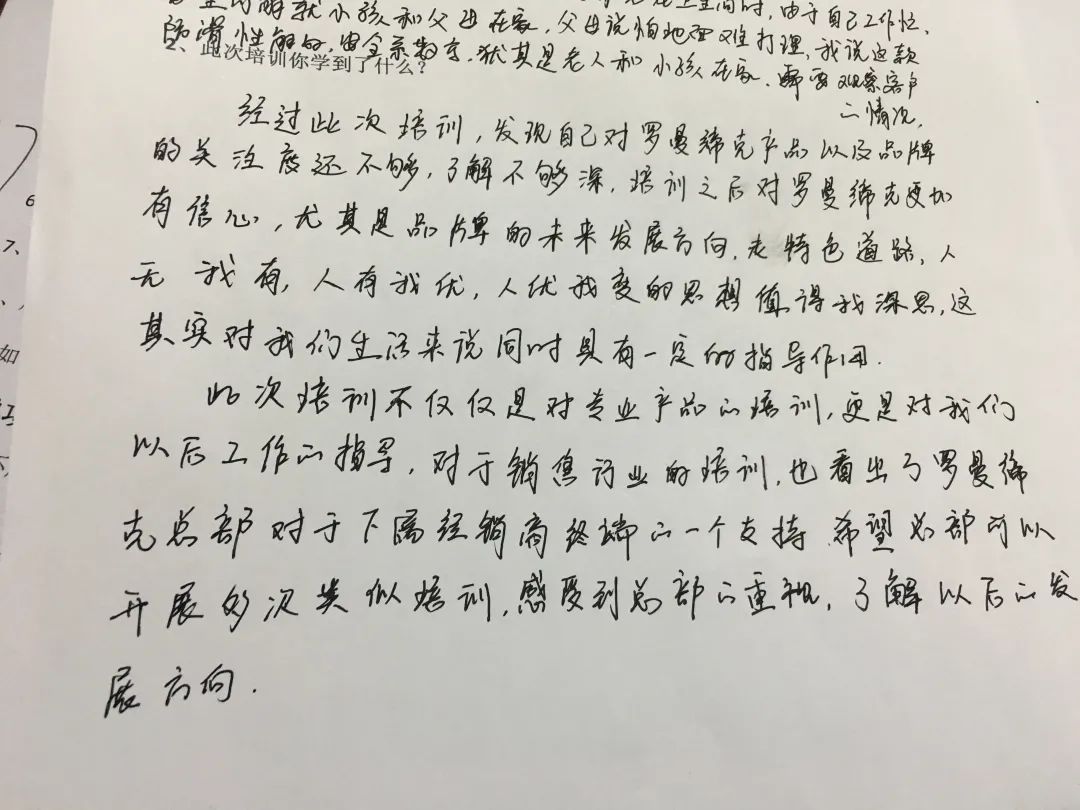 解就小孩和父母在家，父母说怕地理难打理，我说这款
防滑性能好，安全系数高，尤其是老人和小孩在家．需要观察客户
此次培训你学到了什么？
情况，
经过此次培训，发现自己对罗曼缔克产品以及品牌
的关注度还不够，了解不够深，培训之后对罗曼缔克更加
有信心，尤其是品牌的未来发展方向，走特色道路，人
无我有，人有我优，人优我变的思想值得我深思，这
其实对我们生活来说同时具有一定的指导作用．
此次培训不仅仅是对专业产品的培训，更是对我们
以后工作的指导，对于销售行业的培训，也看出了罗曼缔
克总部对于下属经销商终端的一个支持．希望总部可以
开展多次类似培训，感受到总部的重视，了解以后的发
展方向．
6
7、
如